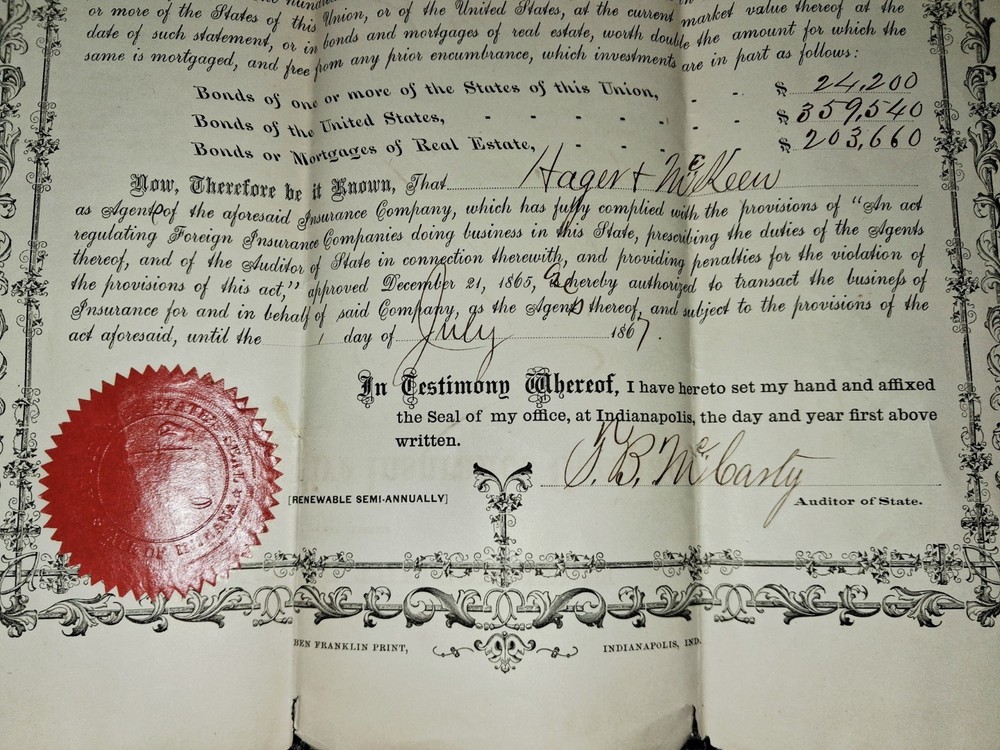 or more of the States of this Union, or of the United States, at the current market value thereof at the
date of such statement, or in bonds and mortgages of real estate, worth double the amount for which the
same is mortgaged, and free from any prior encumbrance, which investments are in part as follows:
Bonds of one or more of the States of this Union, - - $ 24,200
Bonds of the United States, - - - - - - $ 359,540
Bonds or Mortgages of Real Estate, - - - - $ 203,660
Now, Therefore be it Known, That Hager & McKeen
as Agents of the aforesaid Insurance Company, which has fully complied with the provisions of "An act
regulating Foreign Insurance Companies doing business in this State, prescribing the duties of the Agents
thereof, and of the Auditor of State in connection therewith, and providing penalties for the violation of
the provisions of this act," approved December 21, 1865, are hereby authorized to transact the business of
Insurance for and in behalf of said Company, as the Agents thereof, and subject to the provisions of the
act aforesaid, until the 1 day of July 1867.
In Testimony Whereof, I have hereto set my hand and affixed
the Seal of my office, at Indianapolis, the day and year first above
written.
B. McCarty
[RENEWABLE SEMI-ANNUALLY]
Auditor of State.
BEN FRANKLIN PRINT, INDIANAPOLIS, IND.